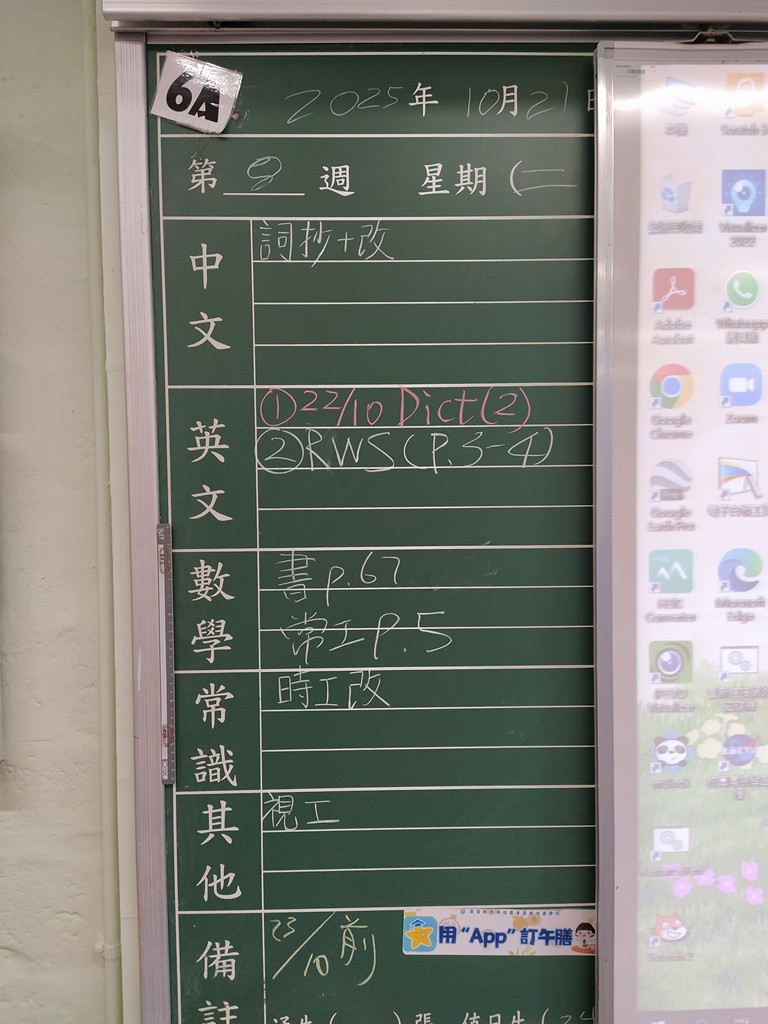 6A
2025年 10月21日
第 8 週 星期(二
中文
詞抄+改
英文
①22/10 Dict(2)
②RWS(P.3-4)
數學
書p.67
常工P.5
常識
時工改
其他
視工
備註
23/10前
用“App”訂午膳
Scratch 3
Visualizer 2022
Adobe Acrobat
Whatsapp
Google Chrome
Zoom
Google Earth Pro
HEIC Converter
Microsoft Edge
mBlock